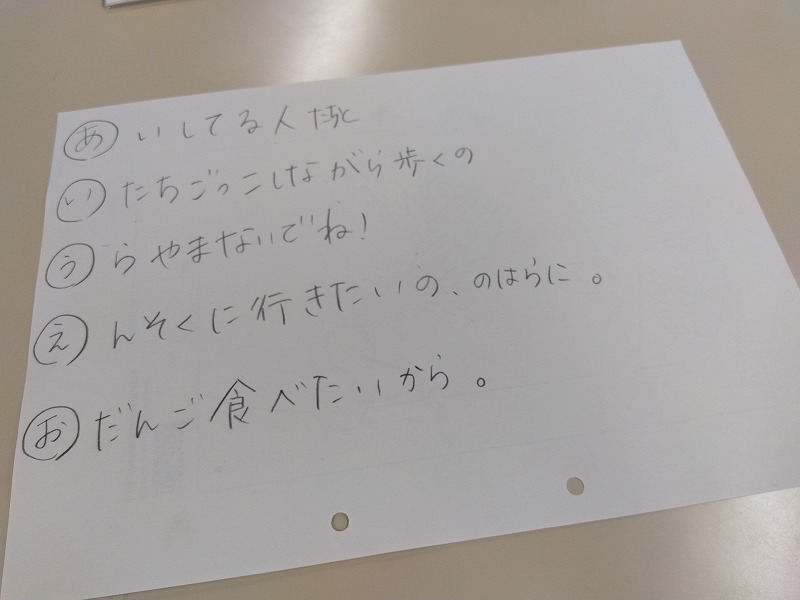 あいしてる人たちと
いたちごっこしながら歩くの
うらやまないでね!
えんそくに行きたいの、のはらに。
おだんご食べたいから。